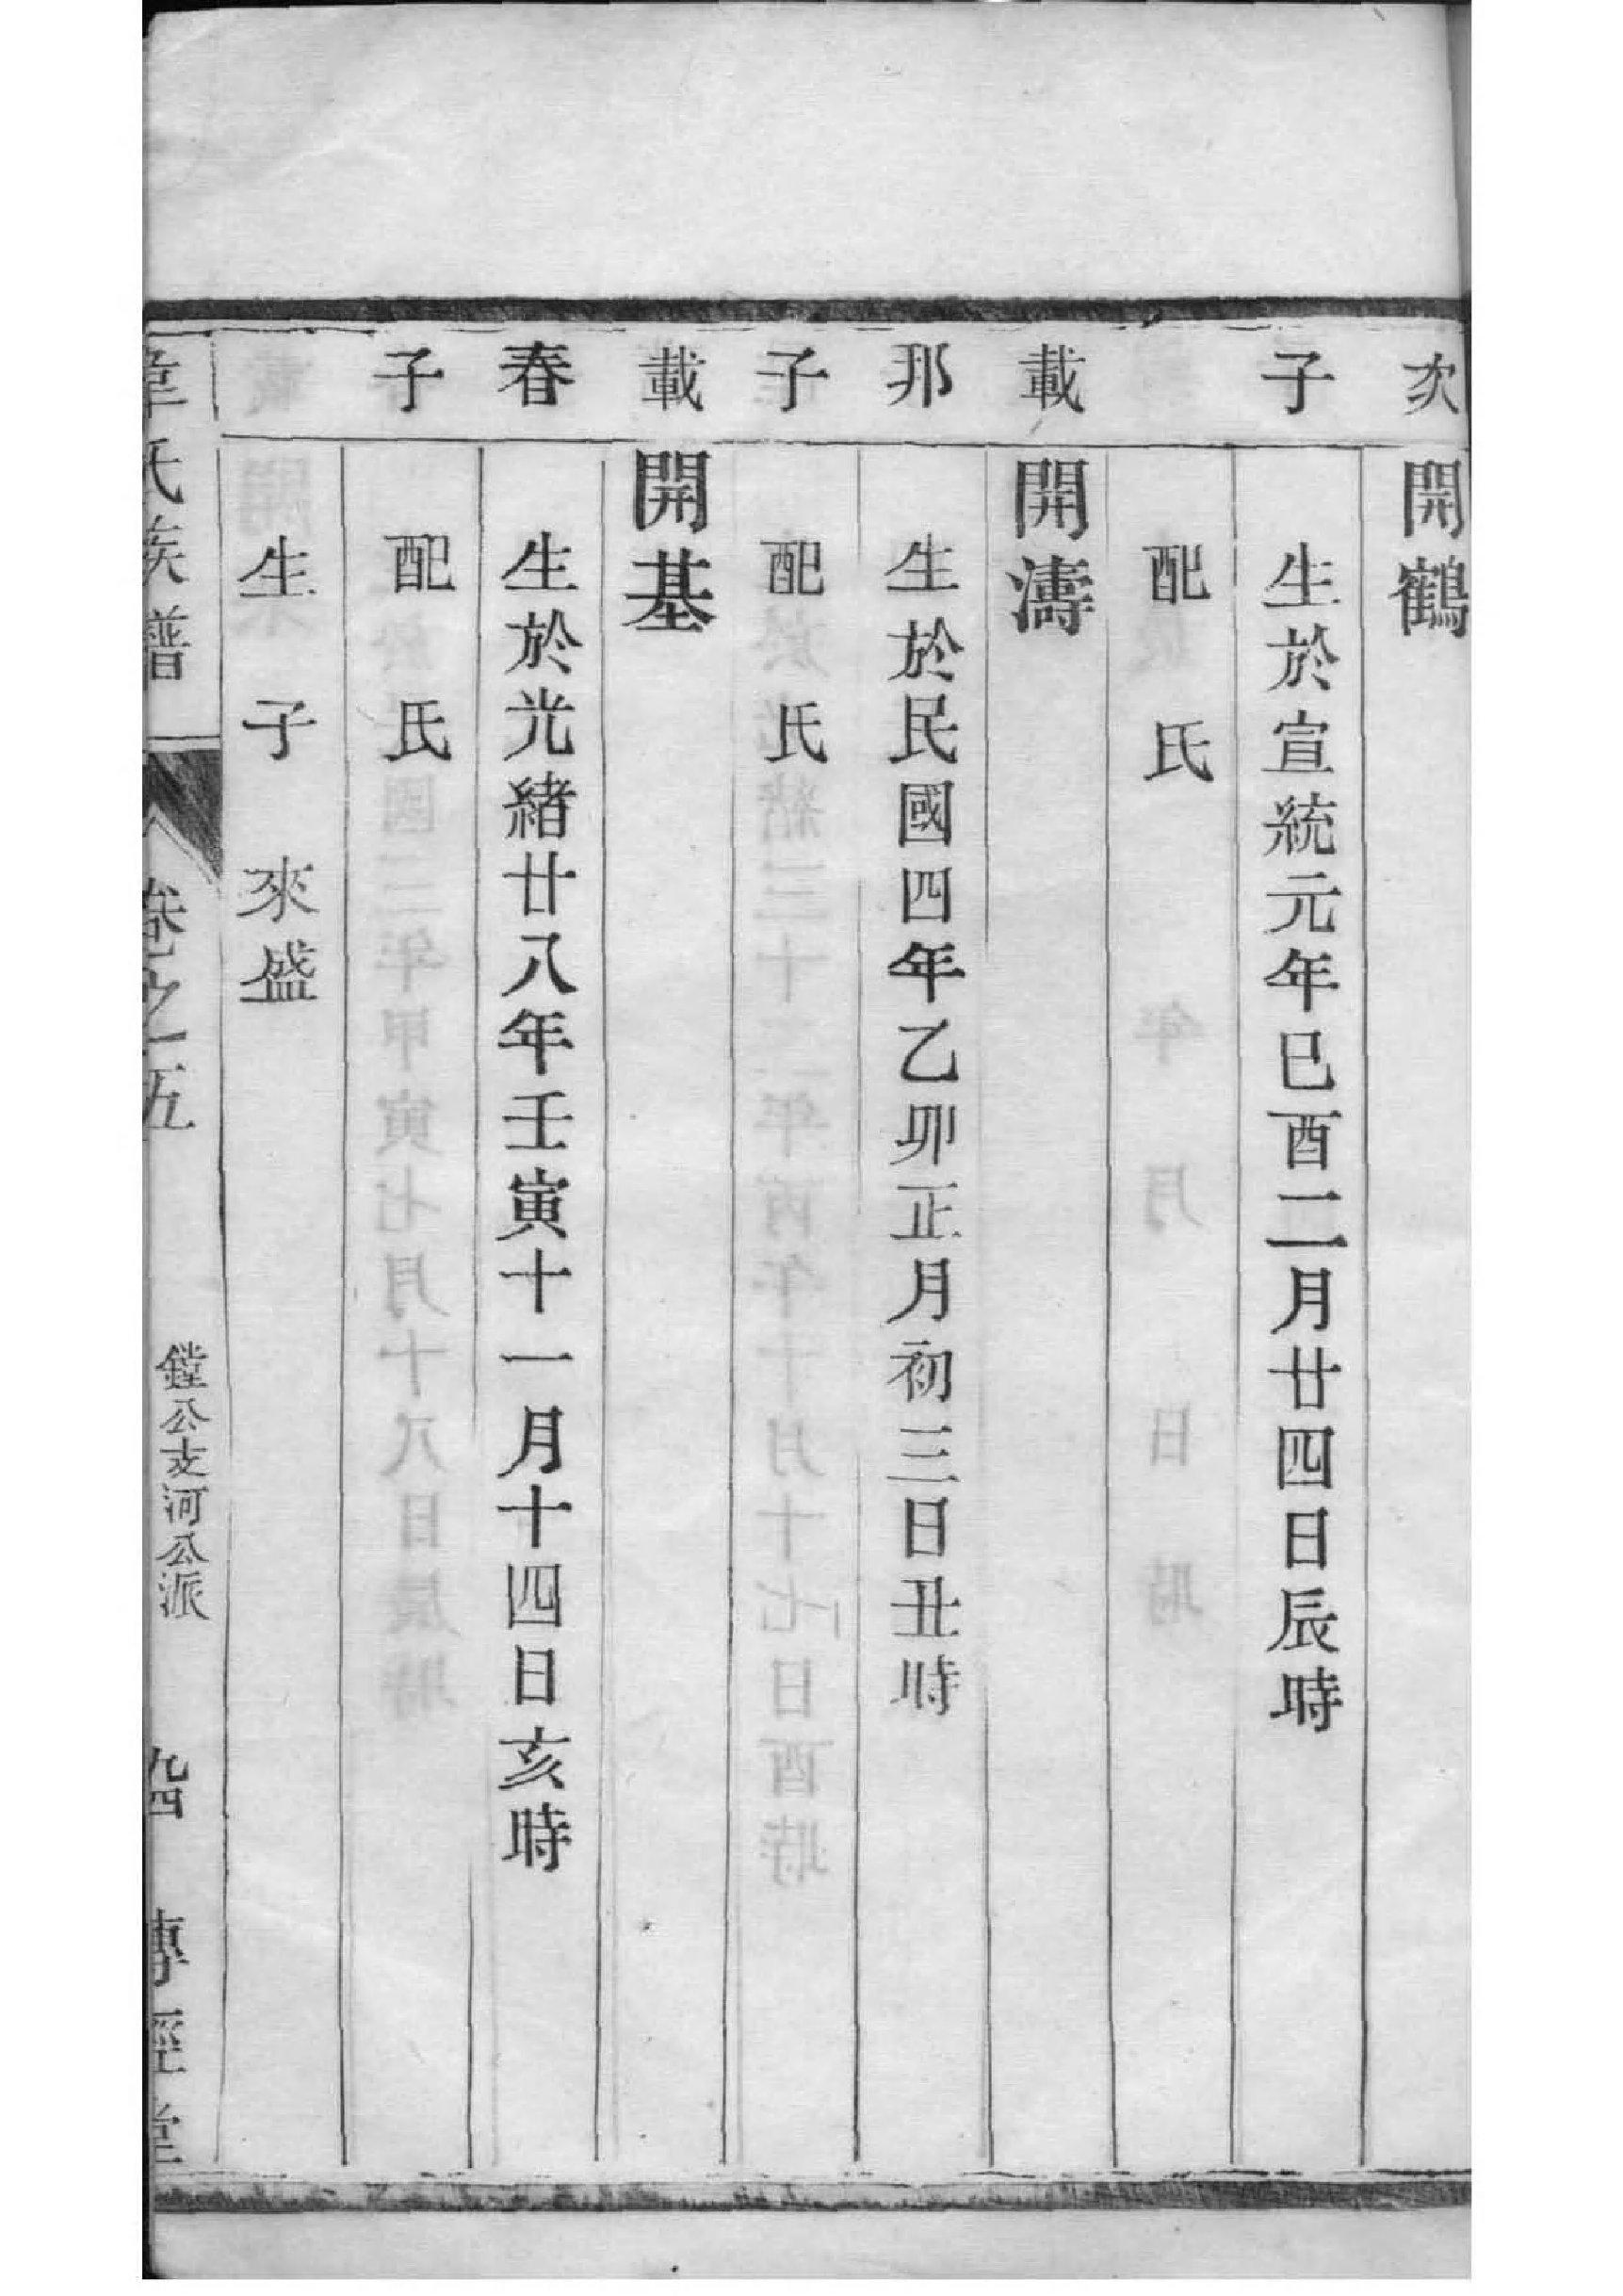 次 開鶴
子 生於宣統元年巳酉二月廿四日辰時
配 氏
載 開濤
邦 生於民國四年乙卯正月初三日丑時
子 配 氏
載 開基
春 生於光緒廿八年壬寅十一月十四日亥時
子 配 氏
生 子 來盛
章氏族譜 卷之五 鏜公支河公派 四 傳經堂